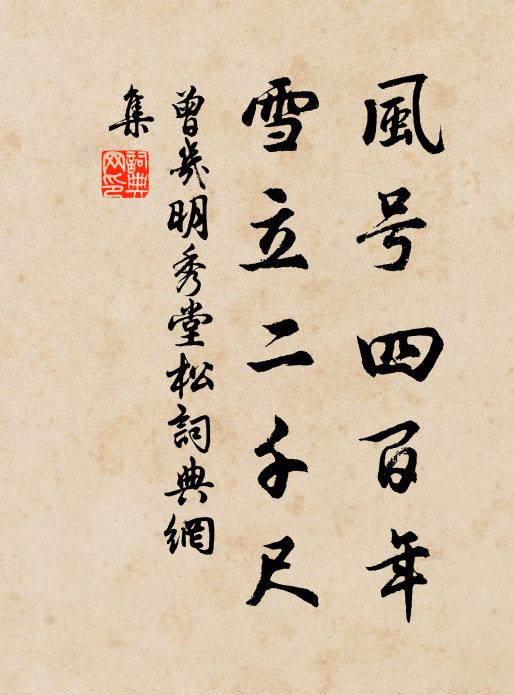 風号四百年
雪立二千尺
曾幾明秀堂松詞典網
集
詞典
网印